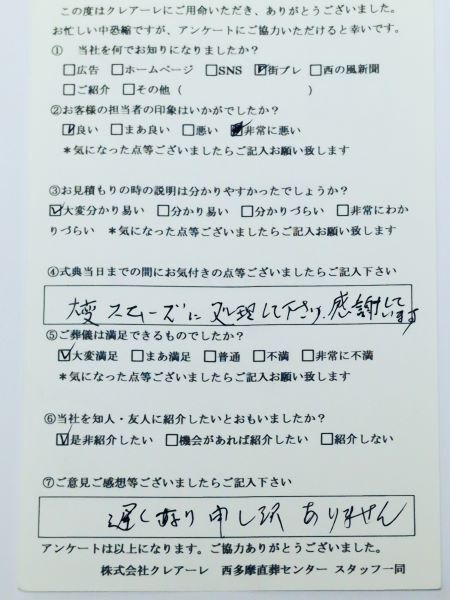 この度はクレアーレにご用命いただき、ありがとうございました。
お忙しい中恐縮ですが、アンケートにご協力いただけると幸いです。
① 当社を何でお知りになりましたか?
□広告 □ホームページ □SNS ☑街プレ □西の風新聞
□ご紹介 □その他( )
②お客様の担当者の印象はいかがでしたか?
☑良い □まあ良い □悪い ■非常に悪い
*気になった点等ございましたらご記入お願い致します
③お見積もりの時の説明は分かりやすかったでしょうか?
☑大変分かり易い □分かり易い □分かりづらい □非常にわか
りづらい *気になった点等ございましたらご記入お願い致します
④式典当日までの間にお気付きの点等ございましたらご記入下さい
大変スムーズに処理して下さり、感謝しています
⑤ご葬儀は満足できるものでしたか?
☑大変満足 □まあ満足 □普通 □不満 □非常に不満
*気になった点等ございましたらご記入お願い致します
⑥当社を知人・友人に紹介したいとおもいましたか?
☑是非紹介したい □機会があれば紹介したい □紹介しない
⑦ご意見ご感想等ございましたらご記入下さい
遅くなり申し訳ありません
アンケートは以上になります。ご協力ありがとうございました。
株式会社クレアーレ 西多摩直葬センター スタッフ一同